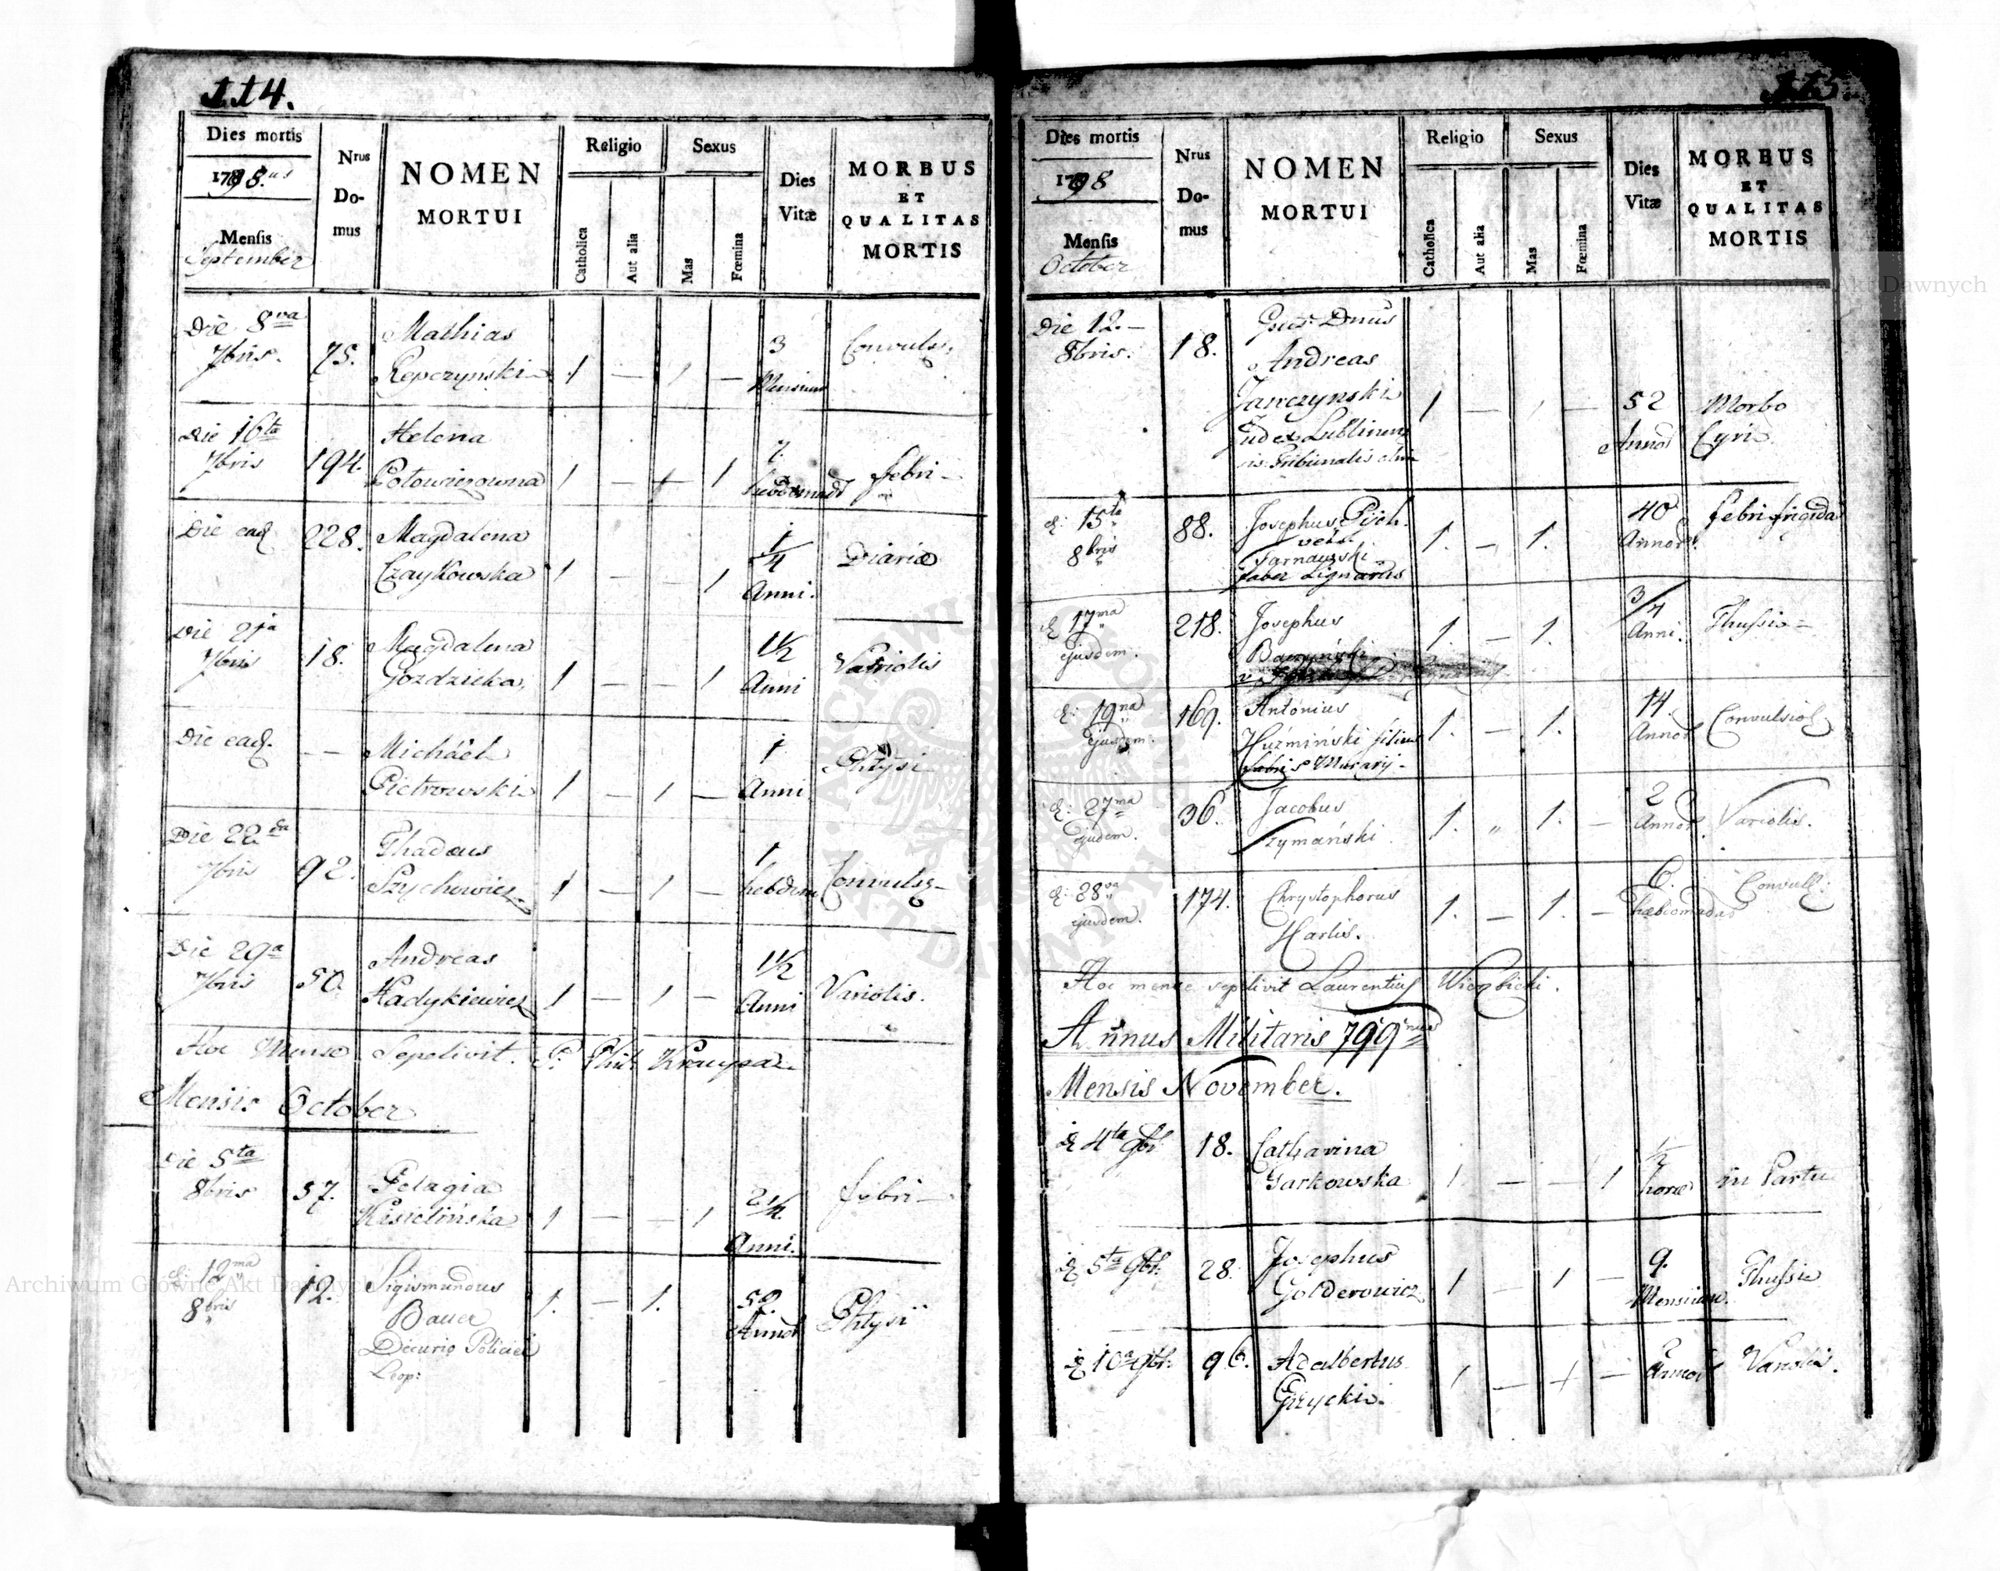 114.
Dies mortis
1798.us
Mensis
September
Nrus
Do-
mus
NOMEN
MORTUI
Religio
Catholica
Aut alia
Sexus
Mas
Fœmina
Dies
Vitæ
MORBUS
ET
QUALITAS
MORTIS
Die 8va
7bris. 75. Mathias
Repczynski 1 — 1 — 3
Mensium Convuls.
Die 16ta
7bris 194. Helena
1 — + 1 7.
febri
Die ead. 228. Magdalena
Czaykowska 1 — — 1 1/4
Anni. Diaria
Die 21a
7bris 18. Magdalena
Gozdzicka 1 — — 1 1½
Anni Variolis
Die ead. — — Michäel
Pietrowski 1 — 1 — 1
Anni Phtysi
Die 22da
7bris 92. Thadæus
Szychowicz 1 — 1 — 1
hebdom
Die 29a
7bris 50. Andreas
Hadykiewicz 1 — 1 — 1½
Anni Variolis.
Hoc Mense Sepelivit. P:
Mensis October
Die 5ta
8bris 57. Pelagia
Kisielińska 1 — — 1 2½
Anni. febri —
d: 12ma
8bris 12. Sigismundus
Bauer
Decurio Policiei
Leop: 1. — 1. 59.
Annor Phtysi
115.
Dies mortis
1798
Mensis
October
Nrus
Do-
mus
NOMEN
MORTUI
Religio
Catholica
Aut alia
Sexus
Mas
Fœmina
Dies
Vitæ
MORBUS
ET
QUALITAS
MORTIS
Die 12.—
8bris. 18. Dnus
Andreas
Jawczynski
Judex Lublinen
sis Tribunalis olim 1 — 1 — 52
Annor Morbo
d: 15ta
8bris 88. Josephus
faber Lignarius 1. — 1. 40
Annor. febri frigida
d: 17ma
ejusdem. 218. Josephus
1. — 1. 3/4
Anni. Thussis
d: 19na
ejusdem. 169. Antonius
Kuźmiński filius
1. — 1. 14.
Annor Convulsio
d: 27ma
ejusdem. 36. Jacobus
Szymański 1. „ 1. — 2
Annor. Variolis.
d: 28va
ejusdem. 174. Chrystophorus
Harlis. 1. — 1. — 6.
Hebdomadar Convuls:
Hoc mense sepelivit Laurentius Wierzbicki.
Annus Militaris 799nus
Mensis November.
d 4ta 9br 18. Catharina
Garkowska 1. — — 1 ½
horæ in Partu
d 5ta 9br. 28. Josephus
Golderowicz 1 — 1 — 9.
Mensium. Thussi
d 10a 9br. 96. Adalbertus
Gzycki. 1 — + —
Annor Variolis.
Archiwum Główne Akt Dawnych
Archiwum Główne Akt Dawnych
ARCHIWUM GŁÓWNE AKT DAWNYCH